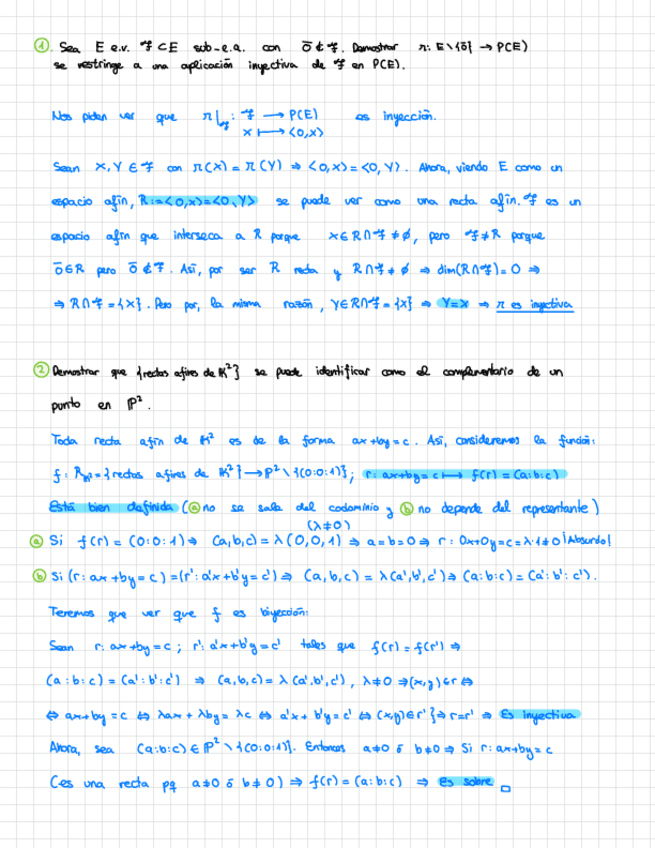 ① Sea E e.v. F⊂E sub-e.a. con 0̄∉F. Demostrar π: E\{0̄} → P(E)
se restringe a una aplicación inyectiva de F en P(E).
Nos piden ver que π|_F: F → P(E) es inyección.
x ↦ <0,x>
Sean X,Y ∈ F con π(X)=π(Y) ⇒ <0,x>=<0,Y>. Ahora, viendo E como un
espacio afín, R:=<0,x>=<0,Y> se puede ver como una recta afín. F es un
espacio afín que interseca a R porque x∈R∩F≠∅, pero F≠R porque
0̄∈R pero 0̄∉F. Así, por ser R recta y R∩F≠∅ ⇒ dim(R∩F)=0 ⇒
⇒ R∩F={X}. Pero por, la misma razón, Y∈R∩F={X} ⇒ Y=X ⇒ π es inyectiva
② Demostrar que {rectas afines de K²} se puede identificar como el complementario de un
punto en P².
Toda recta afín de K² es de la forma ax+by=c. Así, consideremos la función:
f: R_K²={rectas afines de K²}→P²\{(0:0:1)}; r: ax+by=c ↦ f(r)=(a:b:c)
Está bien definida (ⓐ no se sale del codominio y ⓑ no depende del representante)
(λ≠0)
ⓐ Si f(r)=(0:0:1)⇒ (a,b,c)=λ(0,0,1) ⇒ a=b=0 ⇒ r: 0x+0y=c=λ·1≠0 ¡Absurdo!
ⓑ Si (r: ax+by=c)=(r': a'x+b'y=c') ⇒ (a,b,c)=λ(a',b',c')⇒ (a:b:c)=(a':b':c').
Tenemos que ver que f es biyección:
Sean r: ax+by=c ; r': a'x+b'y=c' tales que f(r)=f(r') ⇒
(a:b:c)=(a':b':c') ⇒ (a,b,c)=λ(a',b',c'), λ≠0 ⇒(x,y)∈r ⇔
⇔ ax+by=c ⇔ λax+λby=λc ⇔ a'x+b'y=c' ⇔ (x,y)∈r'}⇒r=r' ⇒ Es inyectiva
Ahora, sea (a:b:c)∈P²\{(0:0:1)}. Entonces a≠0 ó b≠0 ⇒ Si r: ax+by=c
(es una recta pq a≠0 ó b≠0) ⇒ f(r)=(a:b:c) ⇒ Es sobre □